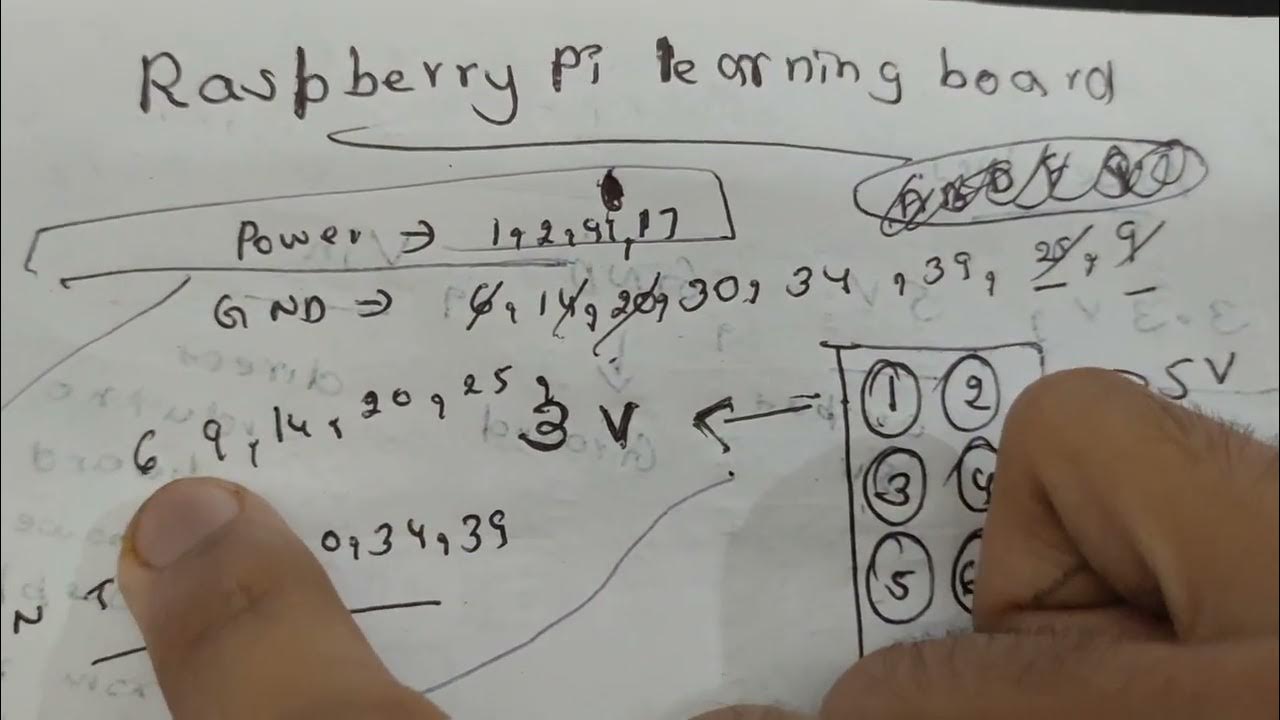 Raspberry Pi learning board
Power → 1, 2, 4, 17
GND → 6, 14, 20, 30, 34, 39, 25, 9
6 9, 14, 20, 25,
3 V ←
5V
0, 34, 39
1 2
3 4
5 6